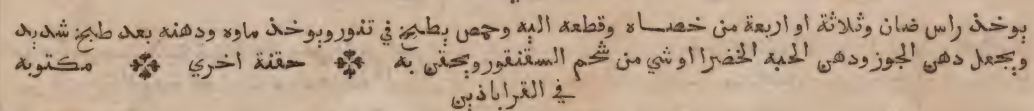 يوخذ راس ضان وثلاثة او اربعة من خصاه وقطعه اليه وحمص يطبخ في تنور ويوخذ ماوه ودهنه بعد طبخ شديد
ويجعل دهن الجوز ودهن الحبه الخضرا او شي من شحم السقنقور ويحقن به حقنة اخري مكتوبه
في القراباذين